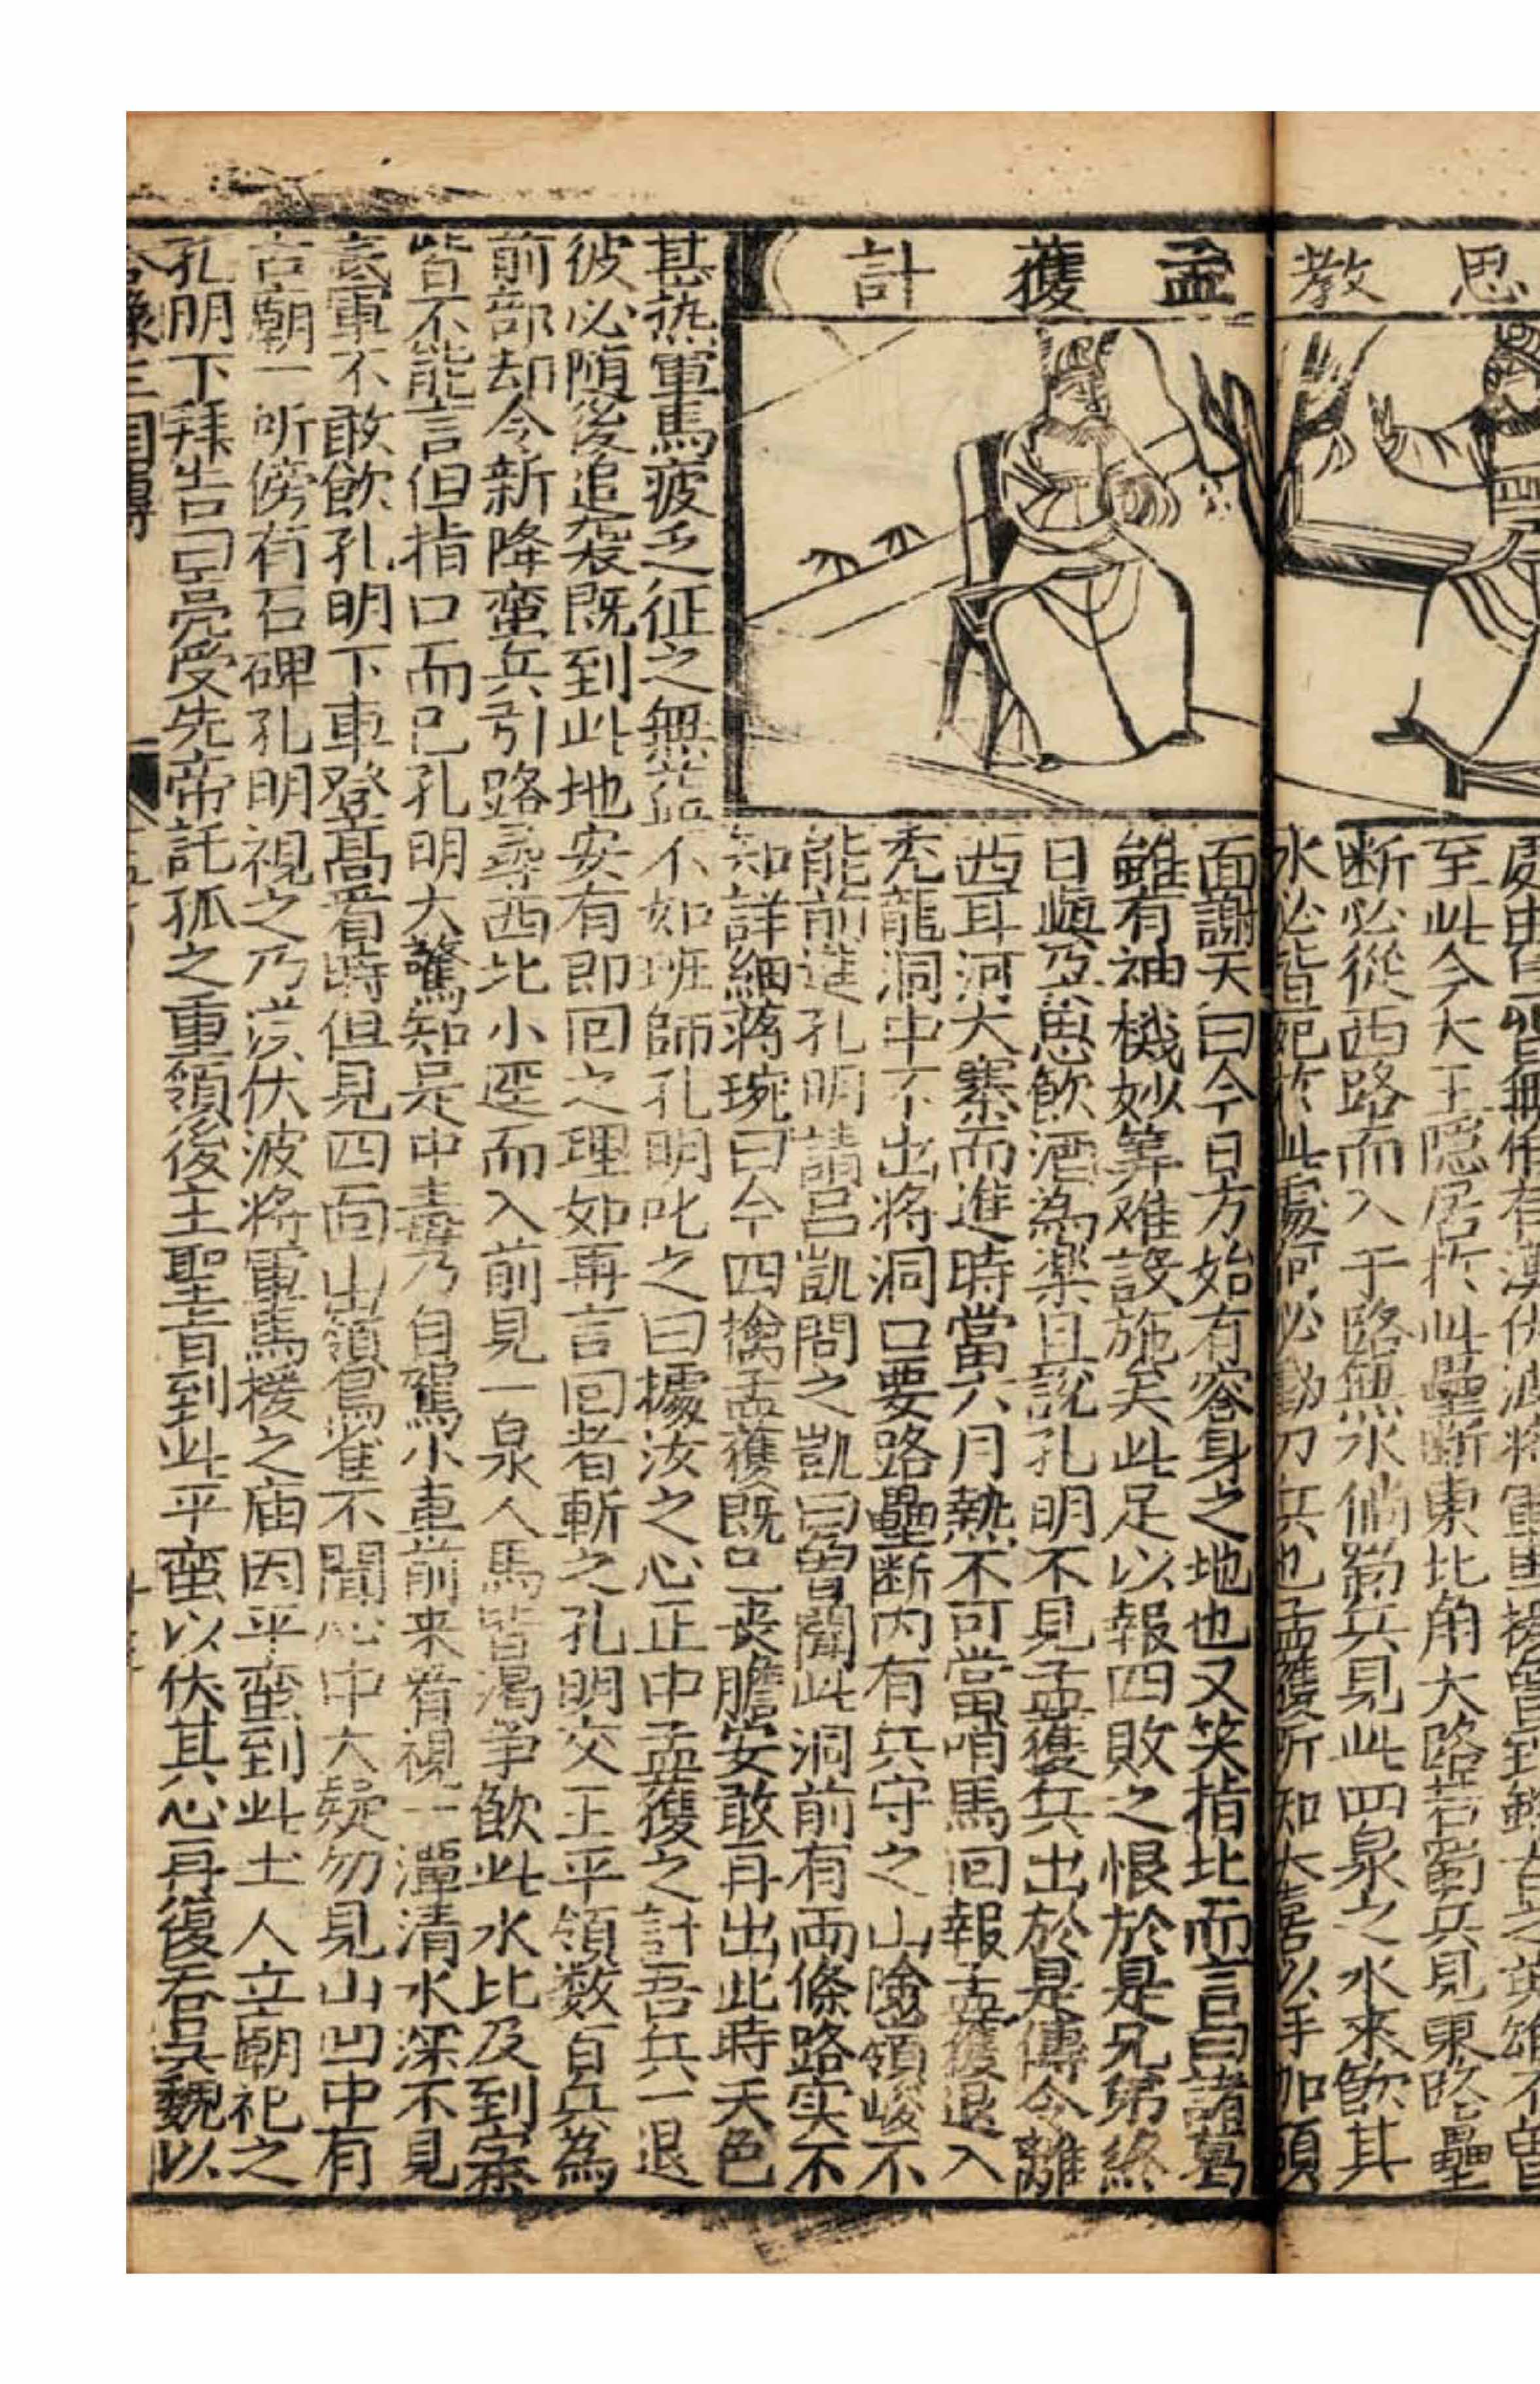 思教
孟獲計
至此今大王隱居扵此壘断東北角大路若蜀兵見東路壘
断必從西路而入于路無水倘蜀兵見此四泉之水來飲其
水必皆死扵此處何必動刀兵也孟獲所知大喜以手加額
面謝天曰今日方始有容身之地也又笑指北而言曰諸葛
雖有神機妙筭难設施矣此足以報四敗之恨於是兄弟終
日與朶思飲酒為楽且說孔明不見孟獲兵出於是傳令離
西耳河大寨而進時當六月熱不可當哨馬回報孟獲退入
禿龍洞中不出将洞口要路壘断内有兵守之山險嶺峻不
能前進孔明請呂凱問之凱曰曽聞此洞前有両條路实不
知詳細蒋琬曰今四擒孟獲既已丧膽安敢再出此時天色
甚热軍馬疲乏征之無益不如班師孔明叱之曰據汝之心正中孟獲之計吾兵一退
彼必随後追襲既到此地安有即回之理如再言回者斬之孔明交王平領数百兵為
前部却令新降蛮兵引路尋西北小逕而入前見一泉人馬皆渴争飲此水比及到寨
皆不能言但指口而已孔明大驚知是中毒乃自駕小車前来看視一潭清水深不見
底軍不敢飲孔明下車登高看時但見四面山嶺鳥雀不聞心中大疑忽見山凹中有
古廟一所傍有石碑孔明視之乃漢伏波将軍馬援之庙因平蛮到此土人立廟祀之
孔明下拜告曰亮受先帝託孤之重領後主聖旨到此平蛮以伏其心再復吞吳魏以